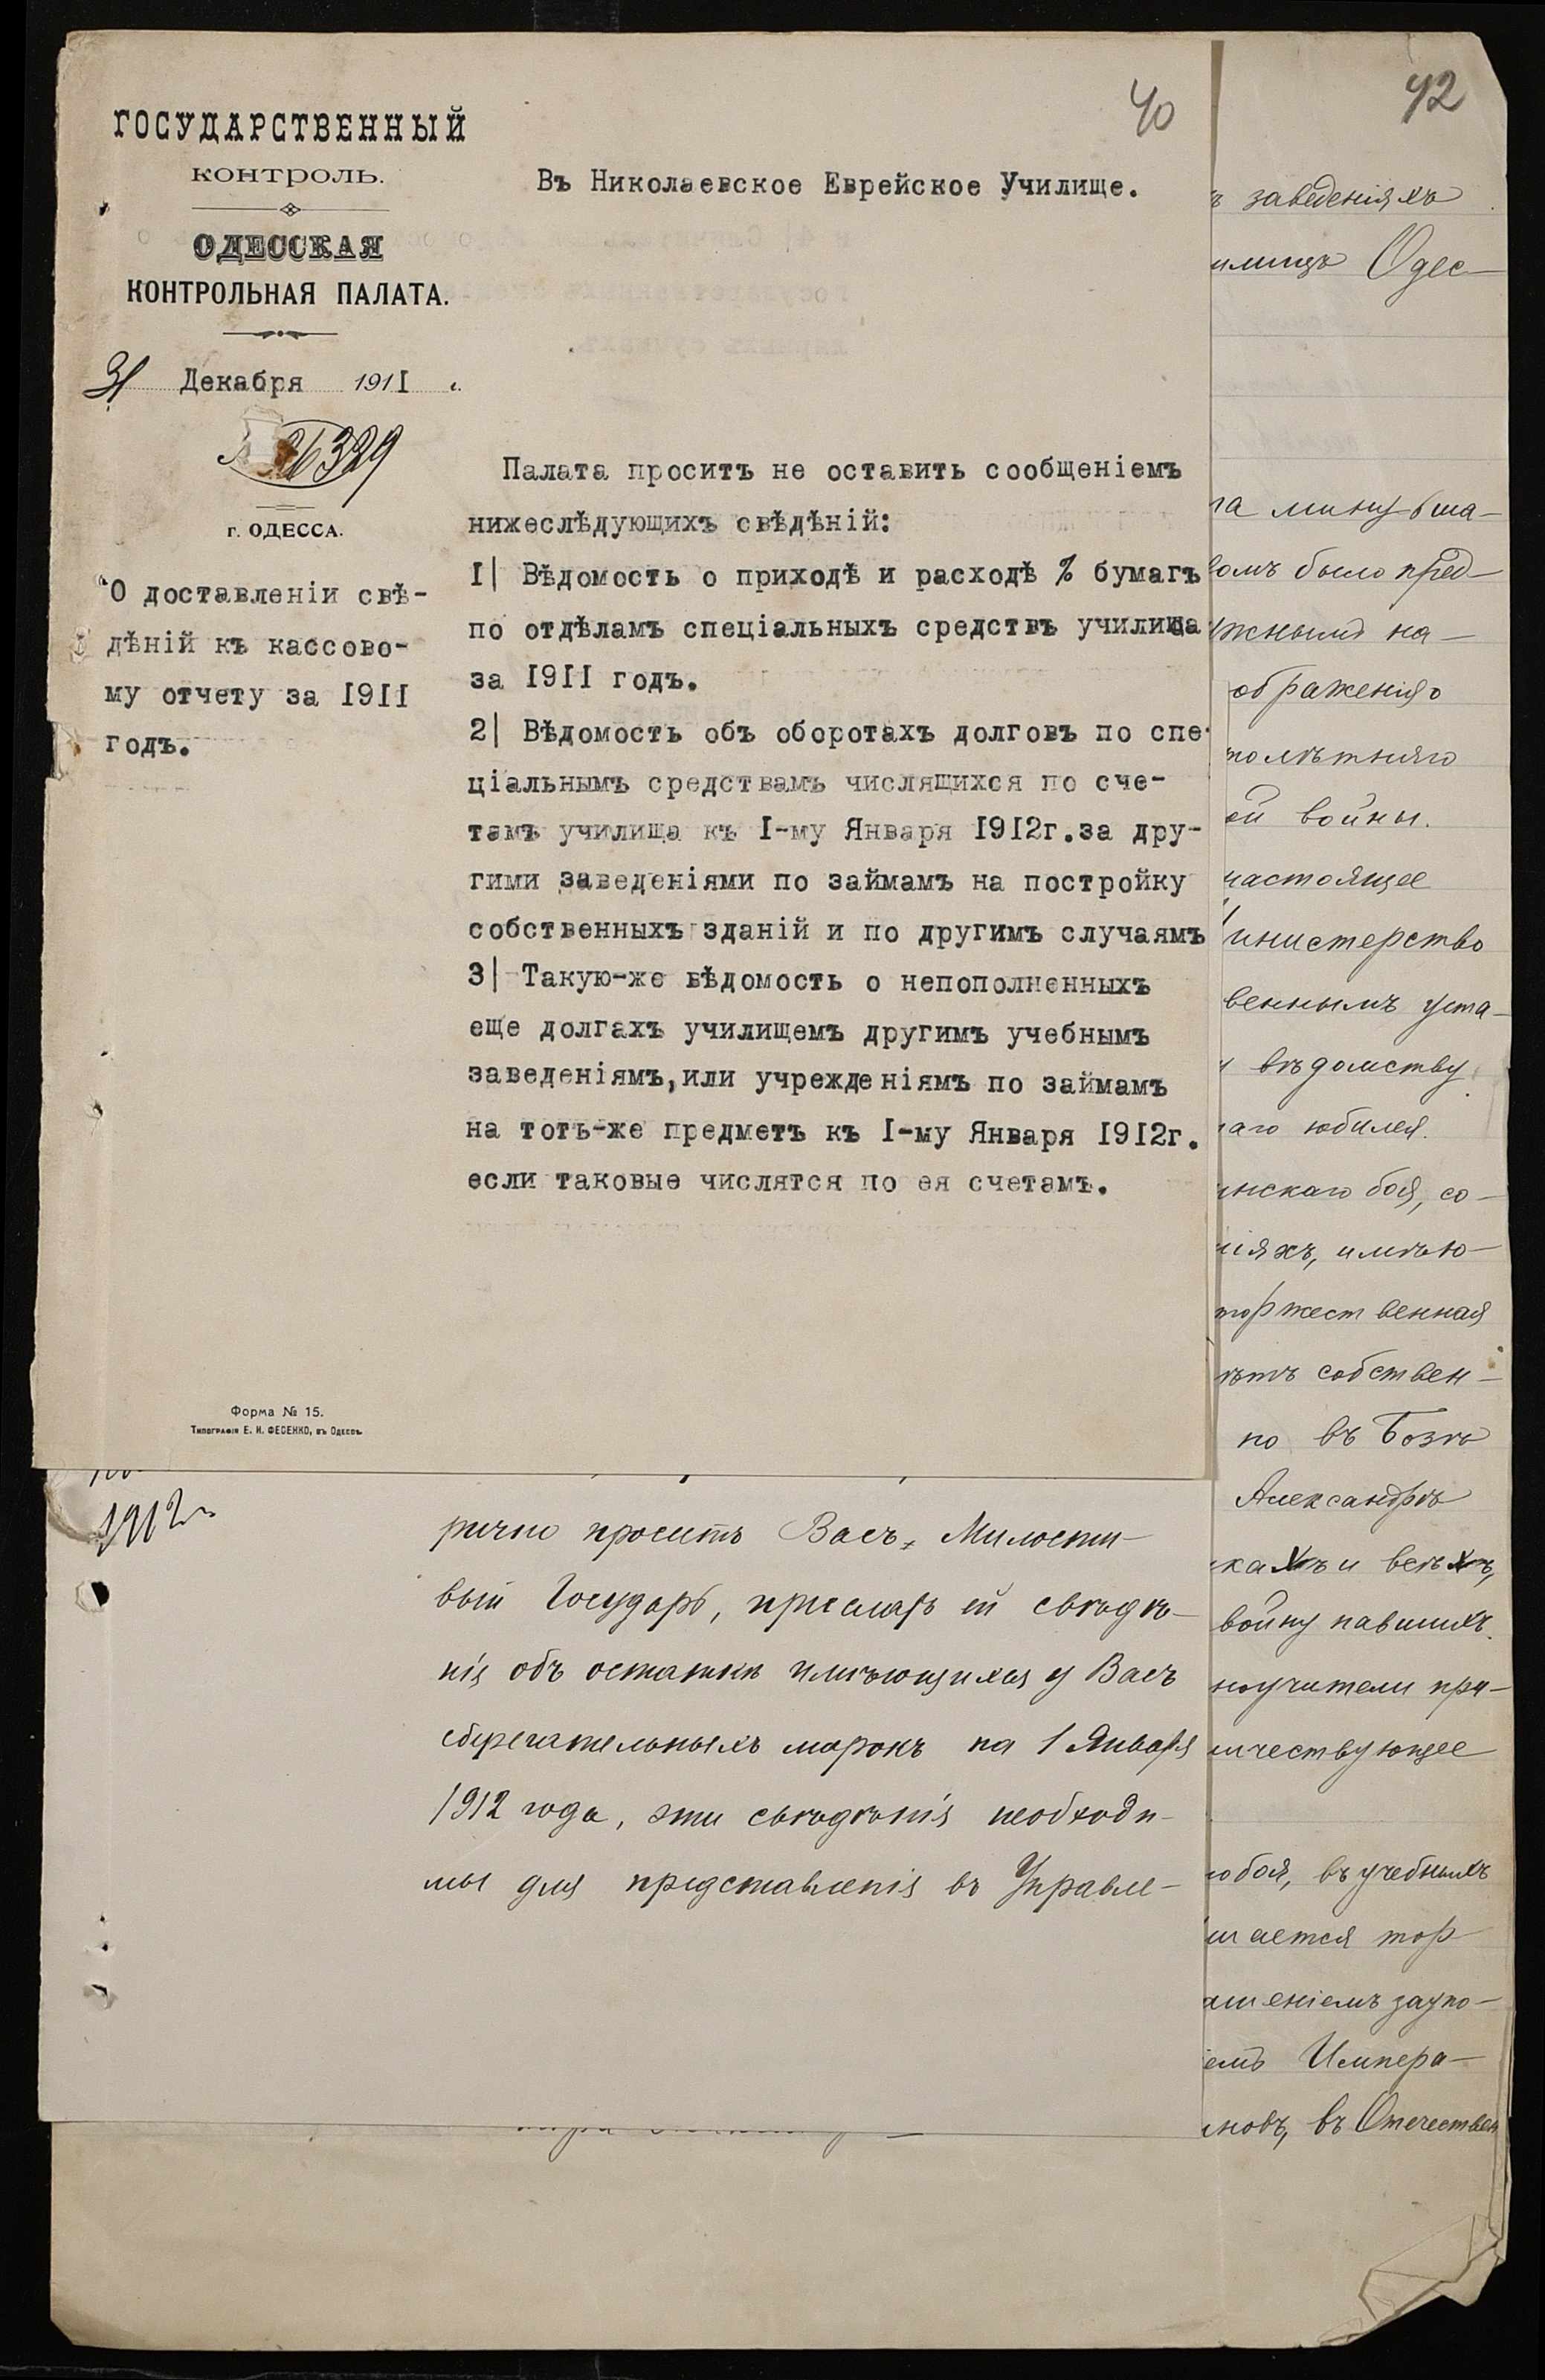 40
ГОСУДАРСТВЕННЫЙ
КОНТРОЛЬ.
ОДЕССКАЯ
КОНТРОЛЬНАЯ ПАЛАТА.
31 Декабря 1911 г.
26329
г. ОДЕССА.
О доставленіи свѣ-
дѣній къ кассово-
му отчету за 1911
годъ.
Въ Николаевское Еврейское Училище.
Палата проситъ не оставить сообщеніемъ
нижеслѣдующихъ свѣдѣній:
I| Вѣдомость о приходѣ и расходѣ % бумагъ
по отдѣламъ спеціальныхъ средствъ училища
за I9II годъ.
2| Вѣдомость объ оборотахъ долговъ по спе-
ціальнымъ средствамъ числящихся по сче-
тамъ училища къ I-му Января I9I2г.за дру-
гими заведеніями по займамъ на постройку
собственныхъ зданій и по другимъ случаямъ
3| Такую-же вѣдомость о непополненныхъ
еще долгахъ училищемъ другимъ учебнымъ
заведеніямъ,или учрежденіямъ по займамъ
на тотъ-же предметъ къ I-му Января I9I2г.
если таковые числятся по ея счетамъ.
Форма № 15.
Типографія Е. И. ФЕСЕНКО, въ Одессѣ.
1912 г.
рично проситъ Васъ, Милости-
вый Государь, прислать ей свѣдѣ-
нія объ остаткѣ имѣющихся у Васъ
сберегательныхъ марокъ на 1 Января
1912 года, эти свѣдѣнія необходи-
мы для представленія въ Управле-
42
заведеніяхъ
илищъ Одес-
га минувша-
омъ было пред-
жнымъ на-
ображенія о
толѣтняго
ой войны.
настоящее
инистерство
веннымъ уста-
вѣдомству
наго юбилея.
инскаго боя, со-
ніяхъ, имѣю-
торжественная
ѣтъ собствен-
но въ Бозѣ
Александрѣ
кахъ и всѣхъ,
войну павшихъ.
ноучители при-
шествующее
боя, въ учебныхъ
шается тор-
ашеніемъ заупо-
емъ Импера-
новъ, въ Отечествен